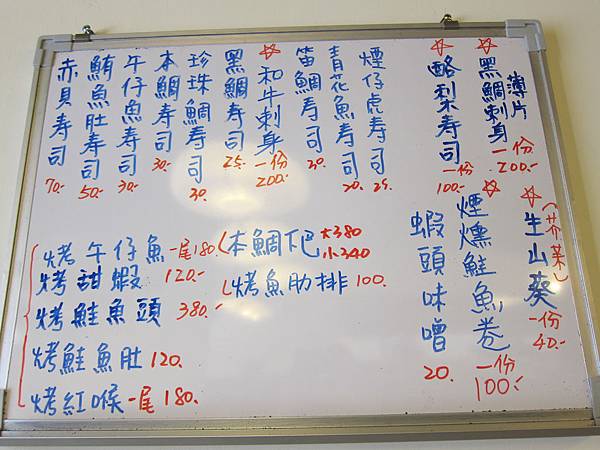 ☆黑鯛刺身 薄片 一份 200.-
☆酪梨寿司 一份 100.-
煙仔虎寿司 25.
青花魚寿司 20.
笛鯛寿司 30.
☆和牛刺身 一份 200.-
黑鯛寿司 25.-
珍珠鯛寿司 30.
本鯛寿司 30.-
午仔魚寿司 30.-
鮪魚肚寿司 50.-
赤貝寿司 70.-
☆生山葵(芥茉) 一份 40.-
☆煙燻鮭魚卷 一份 100.-
蝦頭味噌 20.
烤午仔魚一尾180.
烤甜蝦 120.-
烤鮭魚頭 380.-
烤鮭魚肚 120.
烤紅喉一尾 180.
本鯛下巴 大380 小340
烤魚肋排 100.